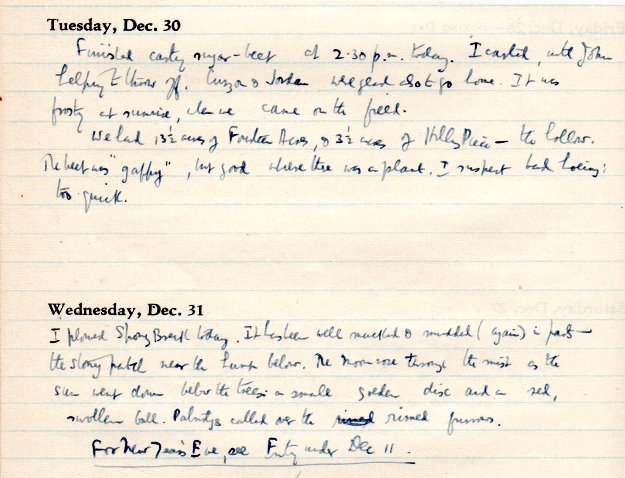 Tuesday, Dec. 30
Finished carting sugar-beet at 2.30 p.m. today. I carted, with John
helping to throw off. Curzon & Jordan were glad also to go home. It was
frosty at sunrise, when we came on the field.
We had 13½ acres of Fourteen Acres, & 3½ acres of Hilly Piece — the hollow.
The beet was "gappy", but good where there was a plant. I suspect bad hoeing:
too quick.
Wednesday, Dec. 31
I plowed Spong Breck today. It has been well mucked & muddled (again) in parts —
the stony patch near the hump below. The moon rose through the mist as the
sun went down below the trees: a small golden disc and a red,
swollen ball. Partridges called over the rimed furrows.
For New Year's Eve, see Entry under Dec 11.